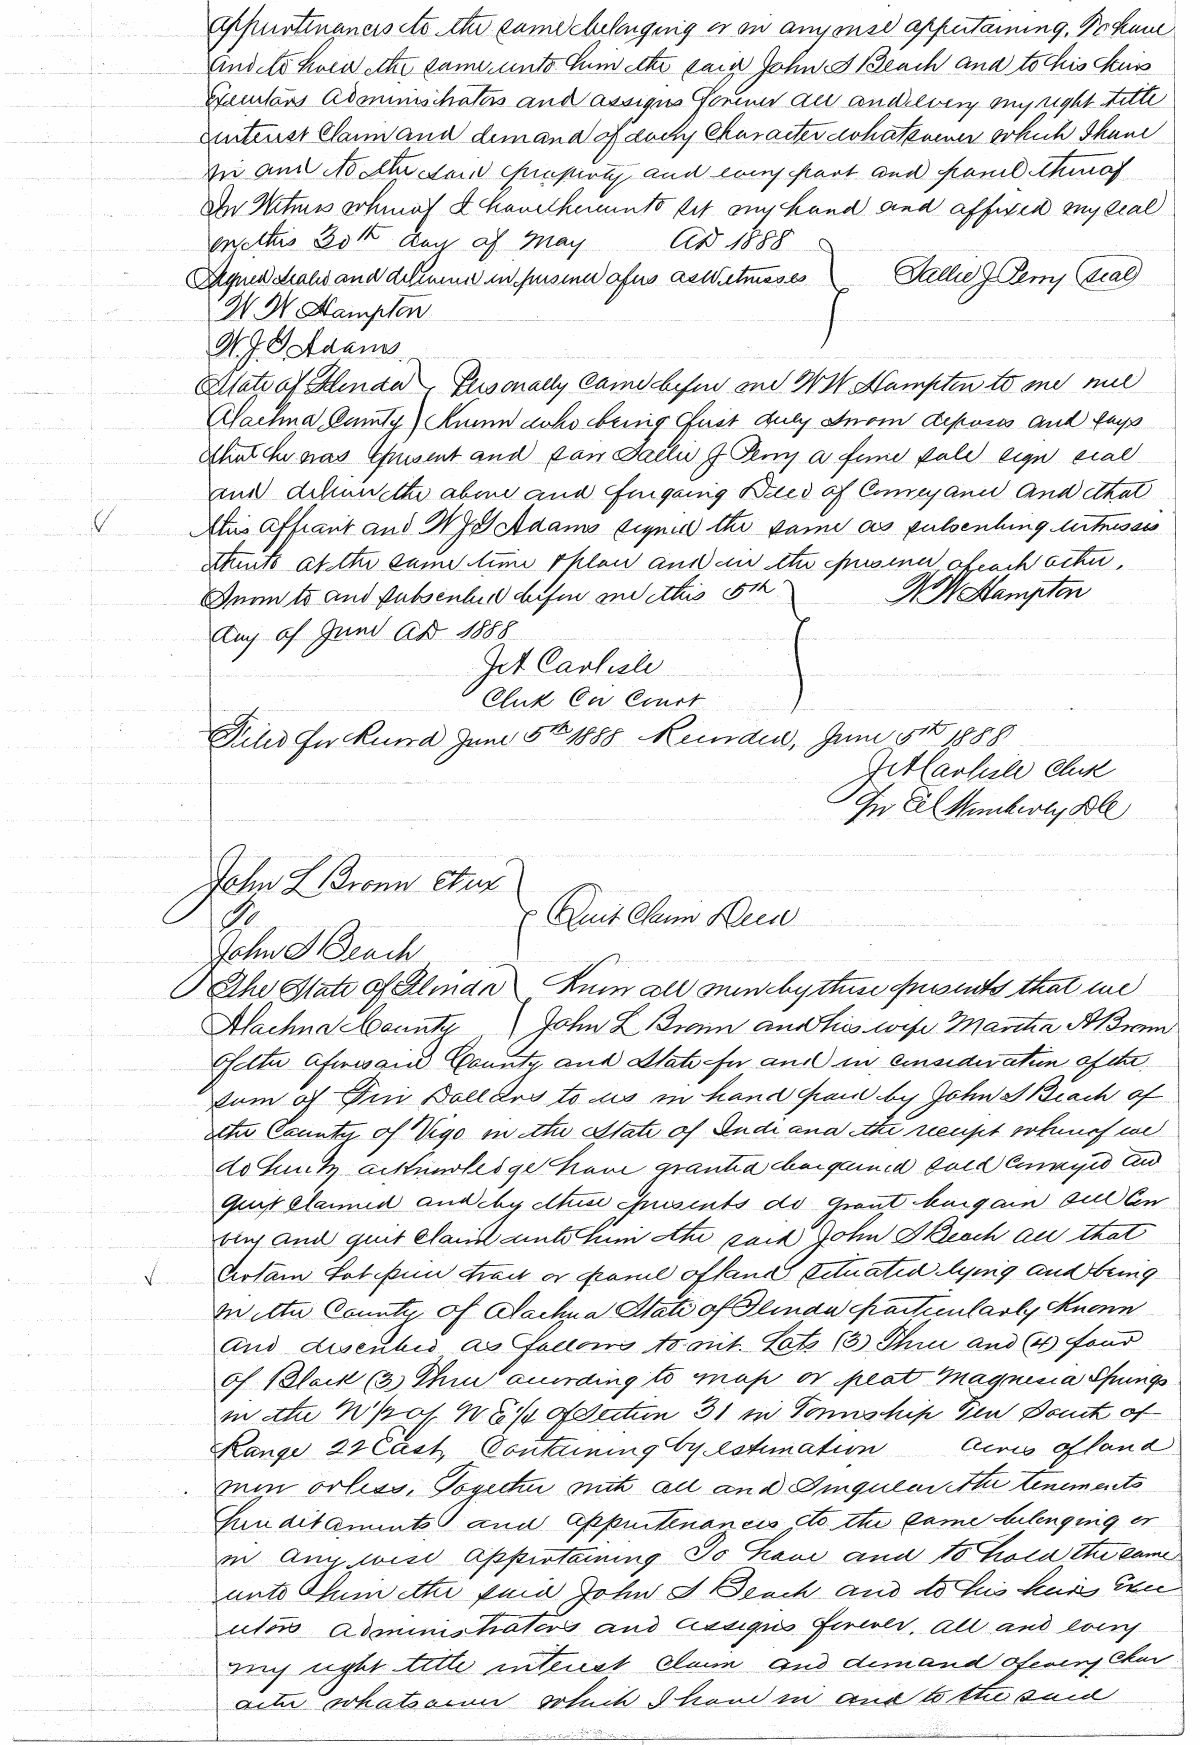 appurtenances to the same belonging or in any wise appertaining. To have
and to hold the same unto him the said John S Beach and to his heirs
Executors Administrators and assigns forever all and every my right title
interest Claim and demand of every Character whatsoever which I have
in and to the said property and every part and parcel thereof
In Witness whereof I have hereunto set my hand and affixed my seal
on this 30th day of May AD 1888
Signed sealed and delivered in presence of us as Witnesses } Sallie J Perry (seal)
W W Hampton
W. J. G Adams
State of Florida } Personally Came before me W W Hampton to me well
Alachua County } Known who being first duly sworn deposes and says
that he was present and saw Sallie J Perry a feme sole sign seal
and deliver the above and foregoing Deed of Conveyance and that
this affiant and W J G Adams signed the same as subscribing witnesses
thereto at the same time & place and in the presence of each other.
Sworn to and subscribed before me this 5th } W W Hampton
day of June AD 1888
Jet Carlisle
Clerk Cir Court
Filed for Record June 5th 1888 Recorded, June 5th 1888
Jet Carlisle Clerk
Wimberly DC
John L Brown et ux
To } Quit Claim Deed
John S Beach
The State of Florida } Know all men by these presents that we
Alachua County } John L Brown and his wife Martha A Brown
of the aforesaid County and State for and in consideration of the
sum of Five Dollars to us in hand paid by John S Beach of
the County of Vigo in the State of Indiana the receipt whereof we
do hereby acknowledge have granted bargained sold conveyed and
quit claimed and by these presents do grant bargain sell Con
vey and quit claim unto him the said John S Beach all that
Certain Lot piece tract or parcel of land situated lying and being
in the County of Alachua State of Florida particularly Known
and described as follows to wit. Lots (3) Three and (4) four
of Block (3) Three according to map or plat Magnesia Springs
in the W½ of N E¼ of Section 31 in Township Ten South of
Range 22 East, Containing by estimation acres of land
more or less. Together with all and Singular the tenements
hereditaments and appurtenances to the same belonging or
in any wise appertaining To have and to hold the same
unto him the said John S Beach and to his heirs Exec
utors administrators and assigns forever. all and every
my right title interest claim and demand of every Char
acter whatsoever which I have in and to the said